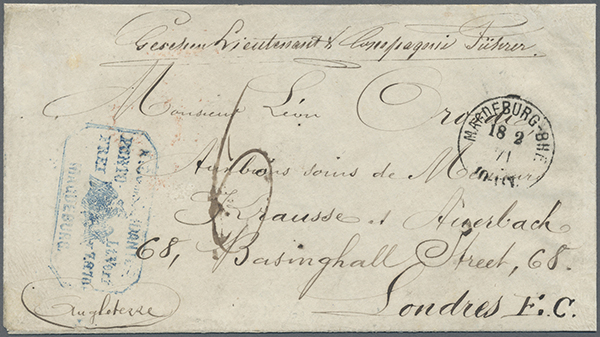 Gesehen Lieutenant & Compagnie Führer
Monsieur Léon
Aux bons soins de Messieurs
Krausse et Auerbach
68, Basinghall Street, 68.
Londres E.C.
Angleterre
6
MAGDEBURG BHF.
18 2
71
PORTO
FREI
1870
MAGDEBURG